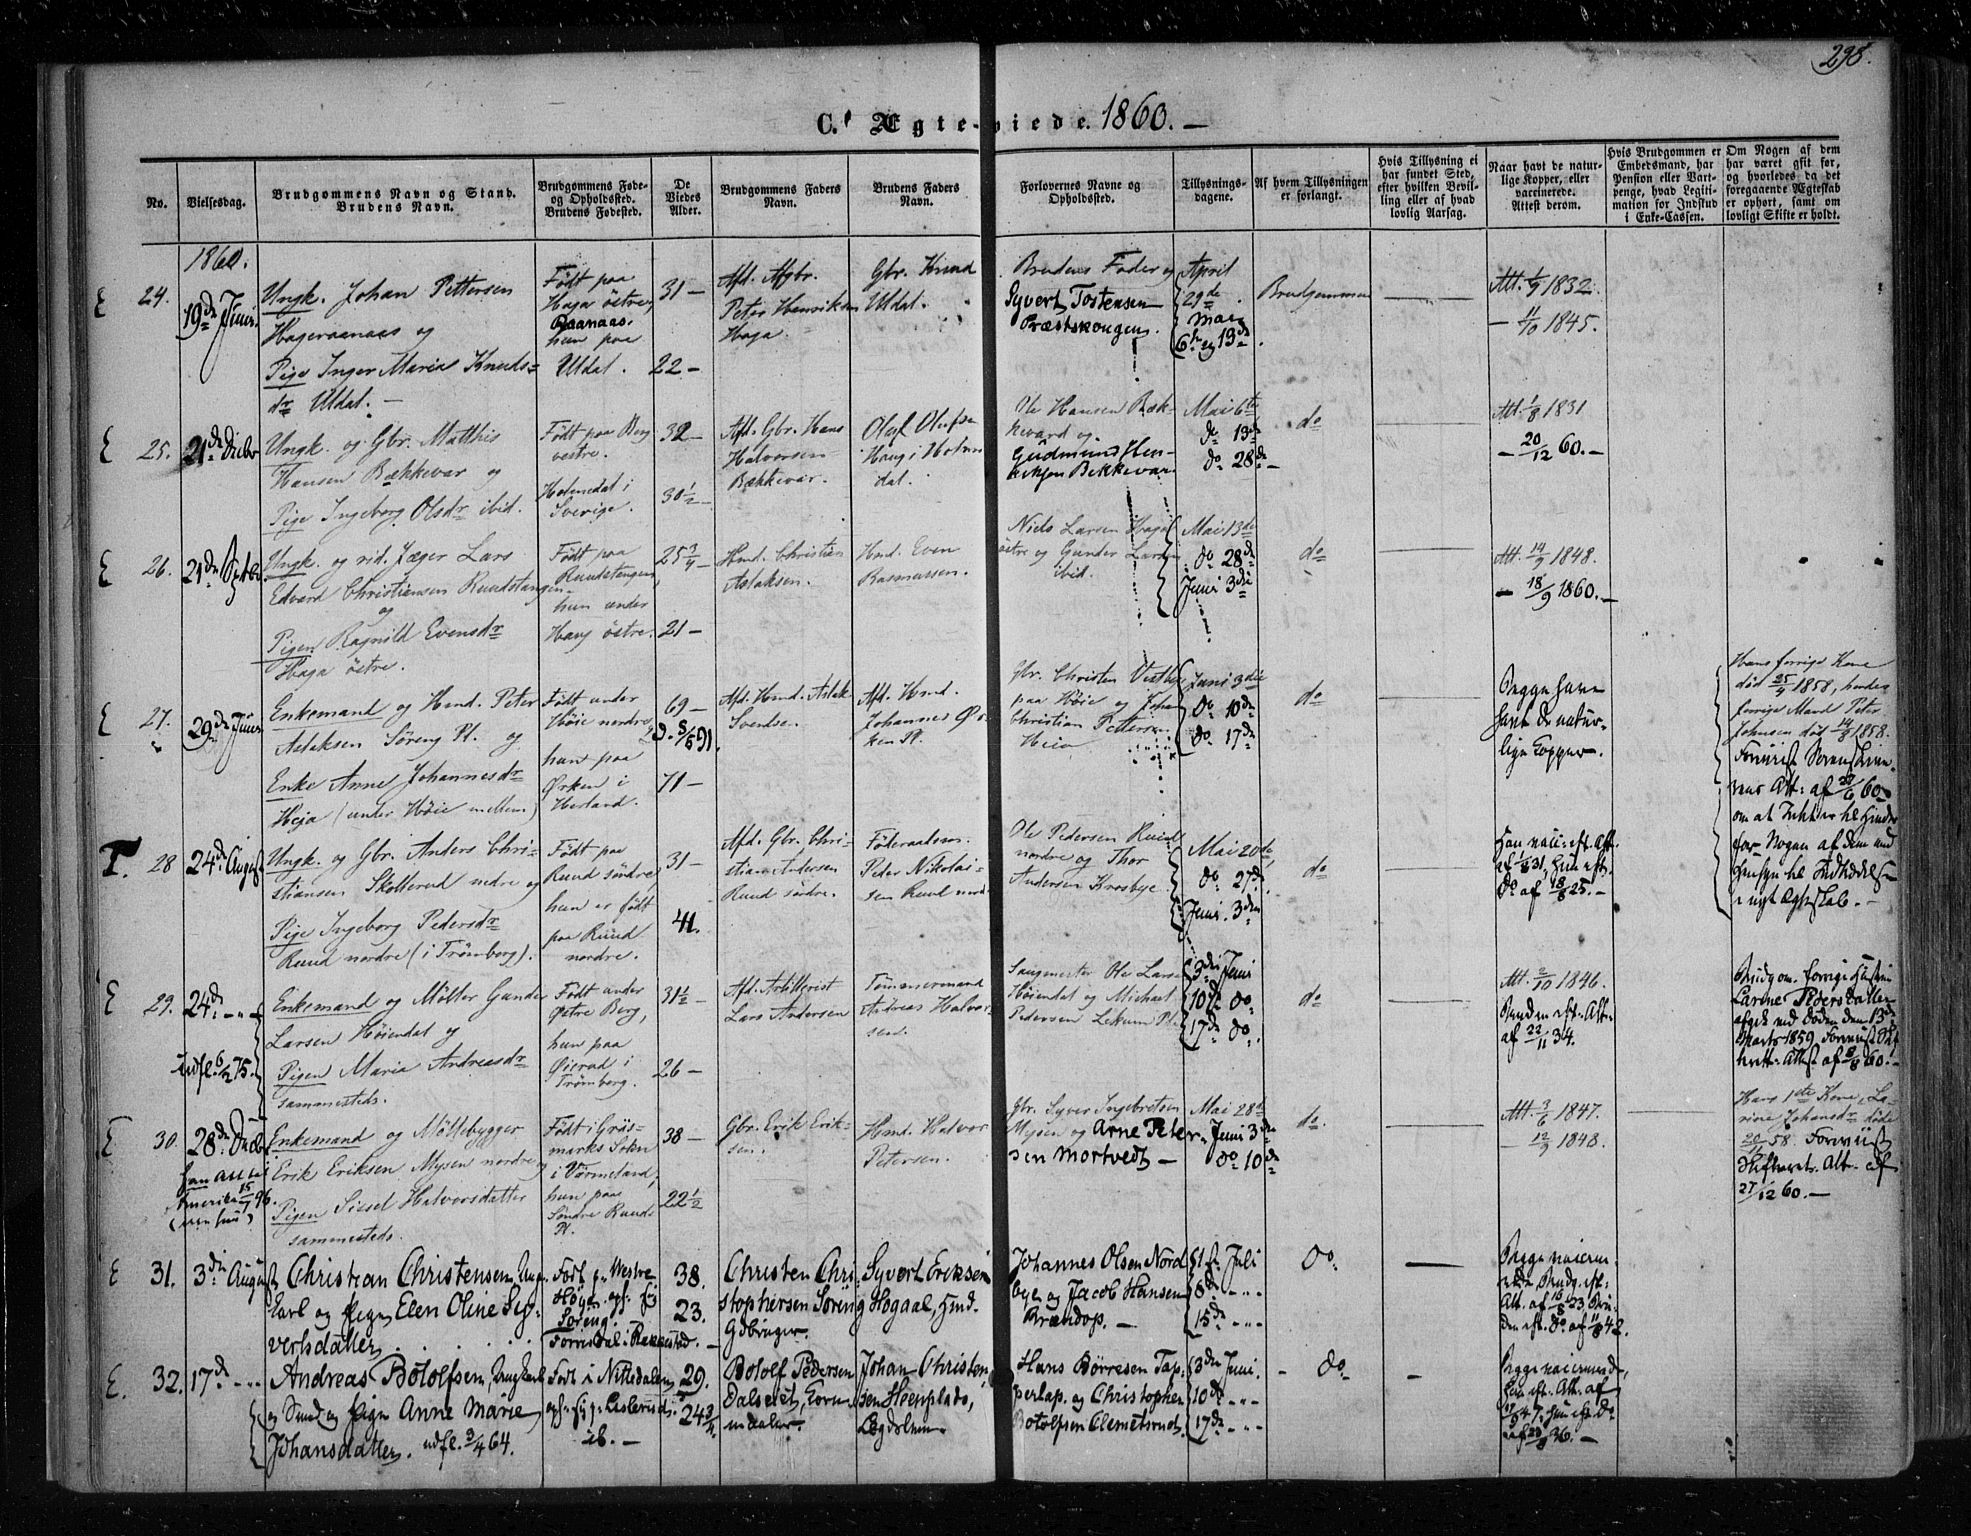 298.
C. Ægteviede. 1860. —
No.
Vielsesdag.
Brudgommens Navn og Stand.
Brudens Navn.
Brudgommens Føde-
og Opholdssted.
Brudens Fødested.
De
Viedes
Alder.
Brudgommens Faders
Navn.
Brudens Faders
Navn.
Forlovernes Navne og
Opholdssted.
Tillysnings-
dagene.
Af hvem Tillysningen
er forlangt.
Hvis Tillysning ei
har fundet Sted,
efter hvilken Bevil-
ling eller af hvad
lovlig Aarsag.
Naar havt de natur-
lige Kopper, eller
vaccinerede.
Attest derom.
Hvis Brudgommen er
Embedsmand, har
Pension eller Vart-
penge, hvad Legiti-
mation for Indskud
i Enke-Cassen.
Om Nogen af dem
har været gift før,
og hvorledes da det
foregaaende Ægteskab
er ophørt, samt om
lovligt Skifte er holdt.
1860.
E 24.
19de Juni.
Ungk. Johan Pettersen
Hageraanaas og
Pige Inger Maria Knuds=
dr Uldal. —
Født paa
Haga östre,
Raanaas.
hun paa
Uldal.
31 —
22 —
Afd. Gbr.
Peter Henriksen
Haga.
Gbr. Knud
Uldal.
Brudens Fader og
Syvert Tostensen
Præstskougen.
April
29de
Mai
6te og 13de
Brudgommen
Att. 1/9 1832.
— 11/10 1845.
E 25.
21de Decbr
Ungk. og Gbr. Matthis
Hansen Bækkevar og
Pige Ingeborg Olsdr ibid.
Født paa Berg
vestre.
Holmedal i
Sverige.
32 —
30 1/2 —
Afd. Gbr. Hans
Halvorsen
Bækkevar.
Oluf Olufsen
Haug i Holme
dal.
Ole Hansen Bæk-
kevard og
Gudmund Hen-
riksen Bekkevar.
Mai 6te
do 13de
do 28de
do
Att. 1/8 1831
— 20/12 60. —
E 26.
21de Septbr
Ungk. og rid. Jæger Lars
Edvard Christiansen Ruudstangen
og
Pigen Ragnild Evensdr
Haga östre.
Født paa
Ruudstangen,
hun under
Haug östre.
25 3/4 —
21 —
Hmd. Christian
Aslaksen.
Hmd. Even
Rasmussen.
Niels Larsen Haga
östre og Gunder Larsen
ibid.
Mai 13de
do 28de
Juni 3die
do
Att. 14/9 1848.
— 18/9 1860. —
E 27.
29de Juni
Enkemand og Hmd. Peter
Aslaksen Söreng Pl. og
Enke Anne Johannesdr
Heja (under Höie mellem)
Født under
Höie nordre,
hun paa
Ørken i
Herland.
69 —
71 —
Afd. Hmd. Aslak
Svendsen.
Afd. Hmd.
Johannes Ør-
ken Pl.
Gbr. Christen Vestby
paa Höie og Johan
Christian Pettersen
Heia
Juni 3die
do 10de
do 17de
do
Begge have
havt de natur-
lige Kopper.
Hans forrige Kone
död 25/4 1858, hendes
forrige Mand Peter
Johnsen död 14/8 1858.
om at Intet er til Hinder
for Nogen af dem med
Hensyn til Indtrædelse
i nyt Ægteskab. —
T. 28
24de August
Ungk. og Gbr. Anders Chri-
stiansen Skolterud nedre og
Pige Ingeborg Pedersdr
Ruud nordre (i Trömborg).
Født paa
Ruud söndre,
hun er født
paa Ruud
nordre.
31 —
41.
Afd. Gbr. Chri-
stian Andersen
Ruud söndre.
Föderaadsm.
Peter Nikolai-
sen Ruud nord
Ole Pedersen Ruud
nordre og Thor
Andersen Krosbye.
Mai 20de
do 27de
Juni 3den
do
Han vacc: eft. Att.
af 1/8 31, hun eft.
do af 18/8 25. —
E 29.
24de — „ —
udfl. 6/2 75.
Enkemand og Möller Gunder
Larsen Höiendal og
Pigen Maria Andreasdr
sammesteds.
Født under
östre Berg,
hun paa
Øierud i
Trömborg.
31 1/2 —
26 —
Afd. Artillerist
Lars Andersen
Tömmermand
Andreas Halvor-
sen.
Saugmester Ole Larsen
Höiendal og Michael
Pedersen Lekum Pl.
3die Juni
10de do
17de do
do
Att. 2/10 1846.
Bruden eft. Att.
af 22/11 34.
Brudgom. forrige Hustru
Larine Pedersdatter
afgik ved döden den 13de
Marts 1859.
E 30.
28de Decbr
Amerika 15/7 96.
Enkemand og Möllebygger
Erik Eriksen Mysen nordre og
Pigen Sissel Halvorsdatter
sammesteds.
Födt i Gräs-
marks Sokn
i Värmeland,
hun paa
Söndre Ruuds
Pl.
38 —
22 1/2
Gbr. Erik Erik-
sen.
Hmd. Halvor
Petersen.
Gbr. Syver Ingebretsen
Mysen og Arne Peter-
sen Mortvedt —
Mai 28de
Juni 3de
do 10de
do.
Att. 3/6 1847.
— 12/9 1848.
Hans 1ste Kone, La-
rine Johansdr döde
27/12 60. —
E 31.
3die August
Christian Christensen, Ung-
karl og Pigen Elen Oline Sy-
vertsdatter.
Födt p. Westre
Höyen
Söreng.
38.
23.
Christen Chri-
stophersen Söreng
Gdbruger.
Syvert Eriksen
Hogaas,
Johannes Olsen Nord
bye og Jacob Hansen
Brændop. —
1ste Juli
8de „
15de „ „
Do.
Begge vaccine-
E. 32.
17de — „
Andreas Botolfsen, Ungkarl
og Smed og Pigen Anne Marie
Johansdatter. udfl. 3/4 64.
Födt i Nittedalen,
ib. —
29.
24 3/4.
Botolf Pedersen
Johan Christen-
sen
Hans Börresen Tap-
perlap. og Christopher
Botolfsen Clemetsrud
3die Juni.
10de „ „
17de „ „
do.
Begge vaccinerede,